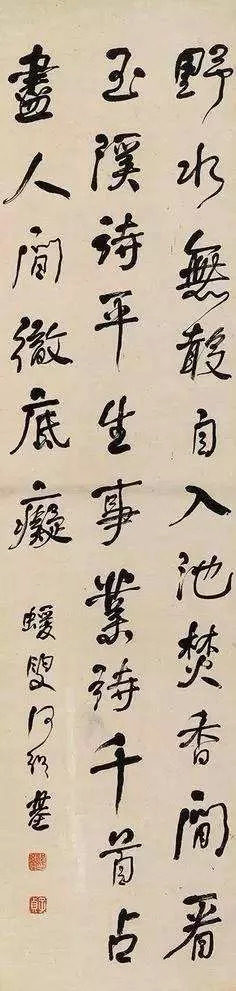 野水無聲自入池焚香閒看
玉溪詩平生事業詩千首占
盡人間徹底癡
蝯叟何紹基